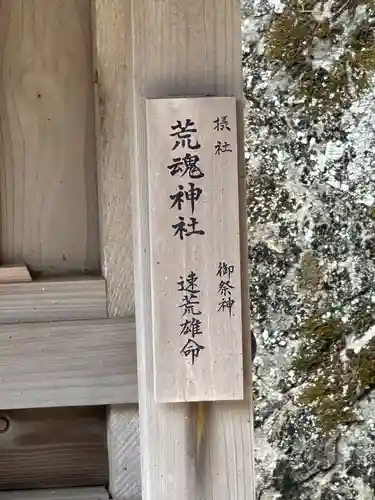 摂社
荒魂神社
御祭神
速荒雄命